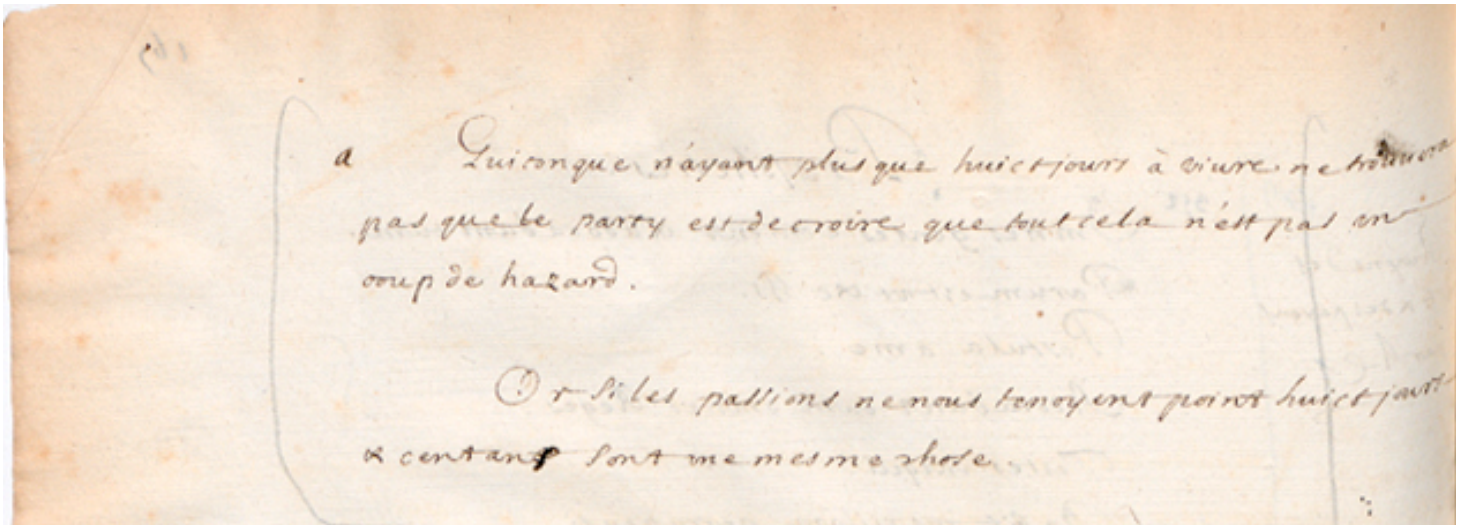 a Quiconque n'ayant plus que huict jours à viure ne trouuera
pas que le party est de croire que tout cela n'est pas vn
coup de hazard.
Or si les passions ne nous tenoyent point huict jours
& cent ans sont vne mesme chose